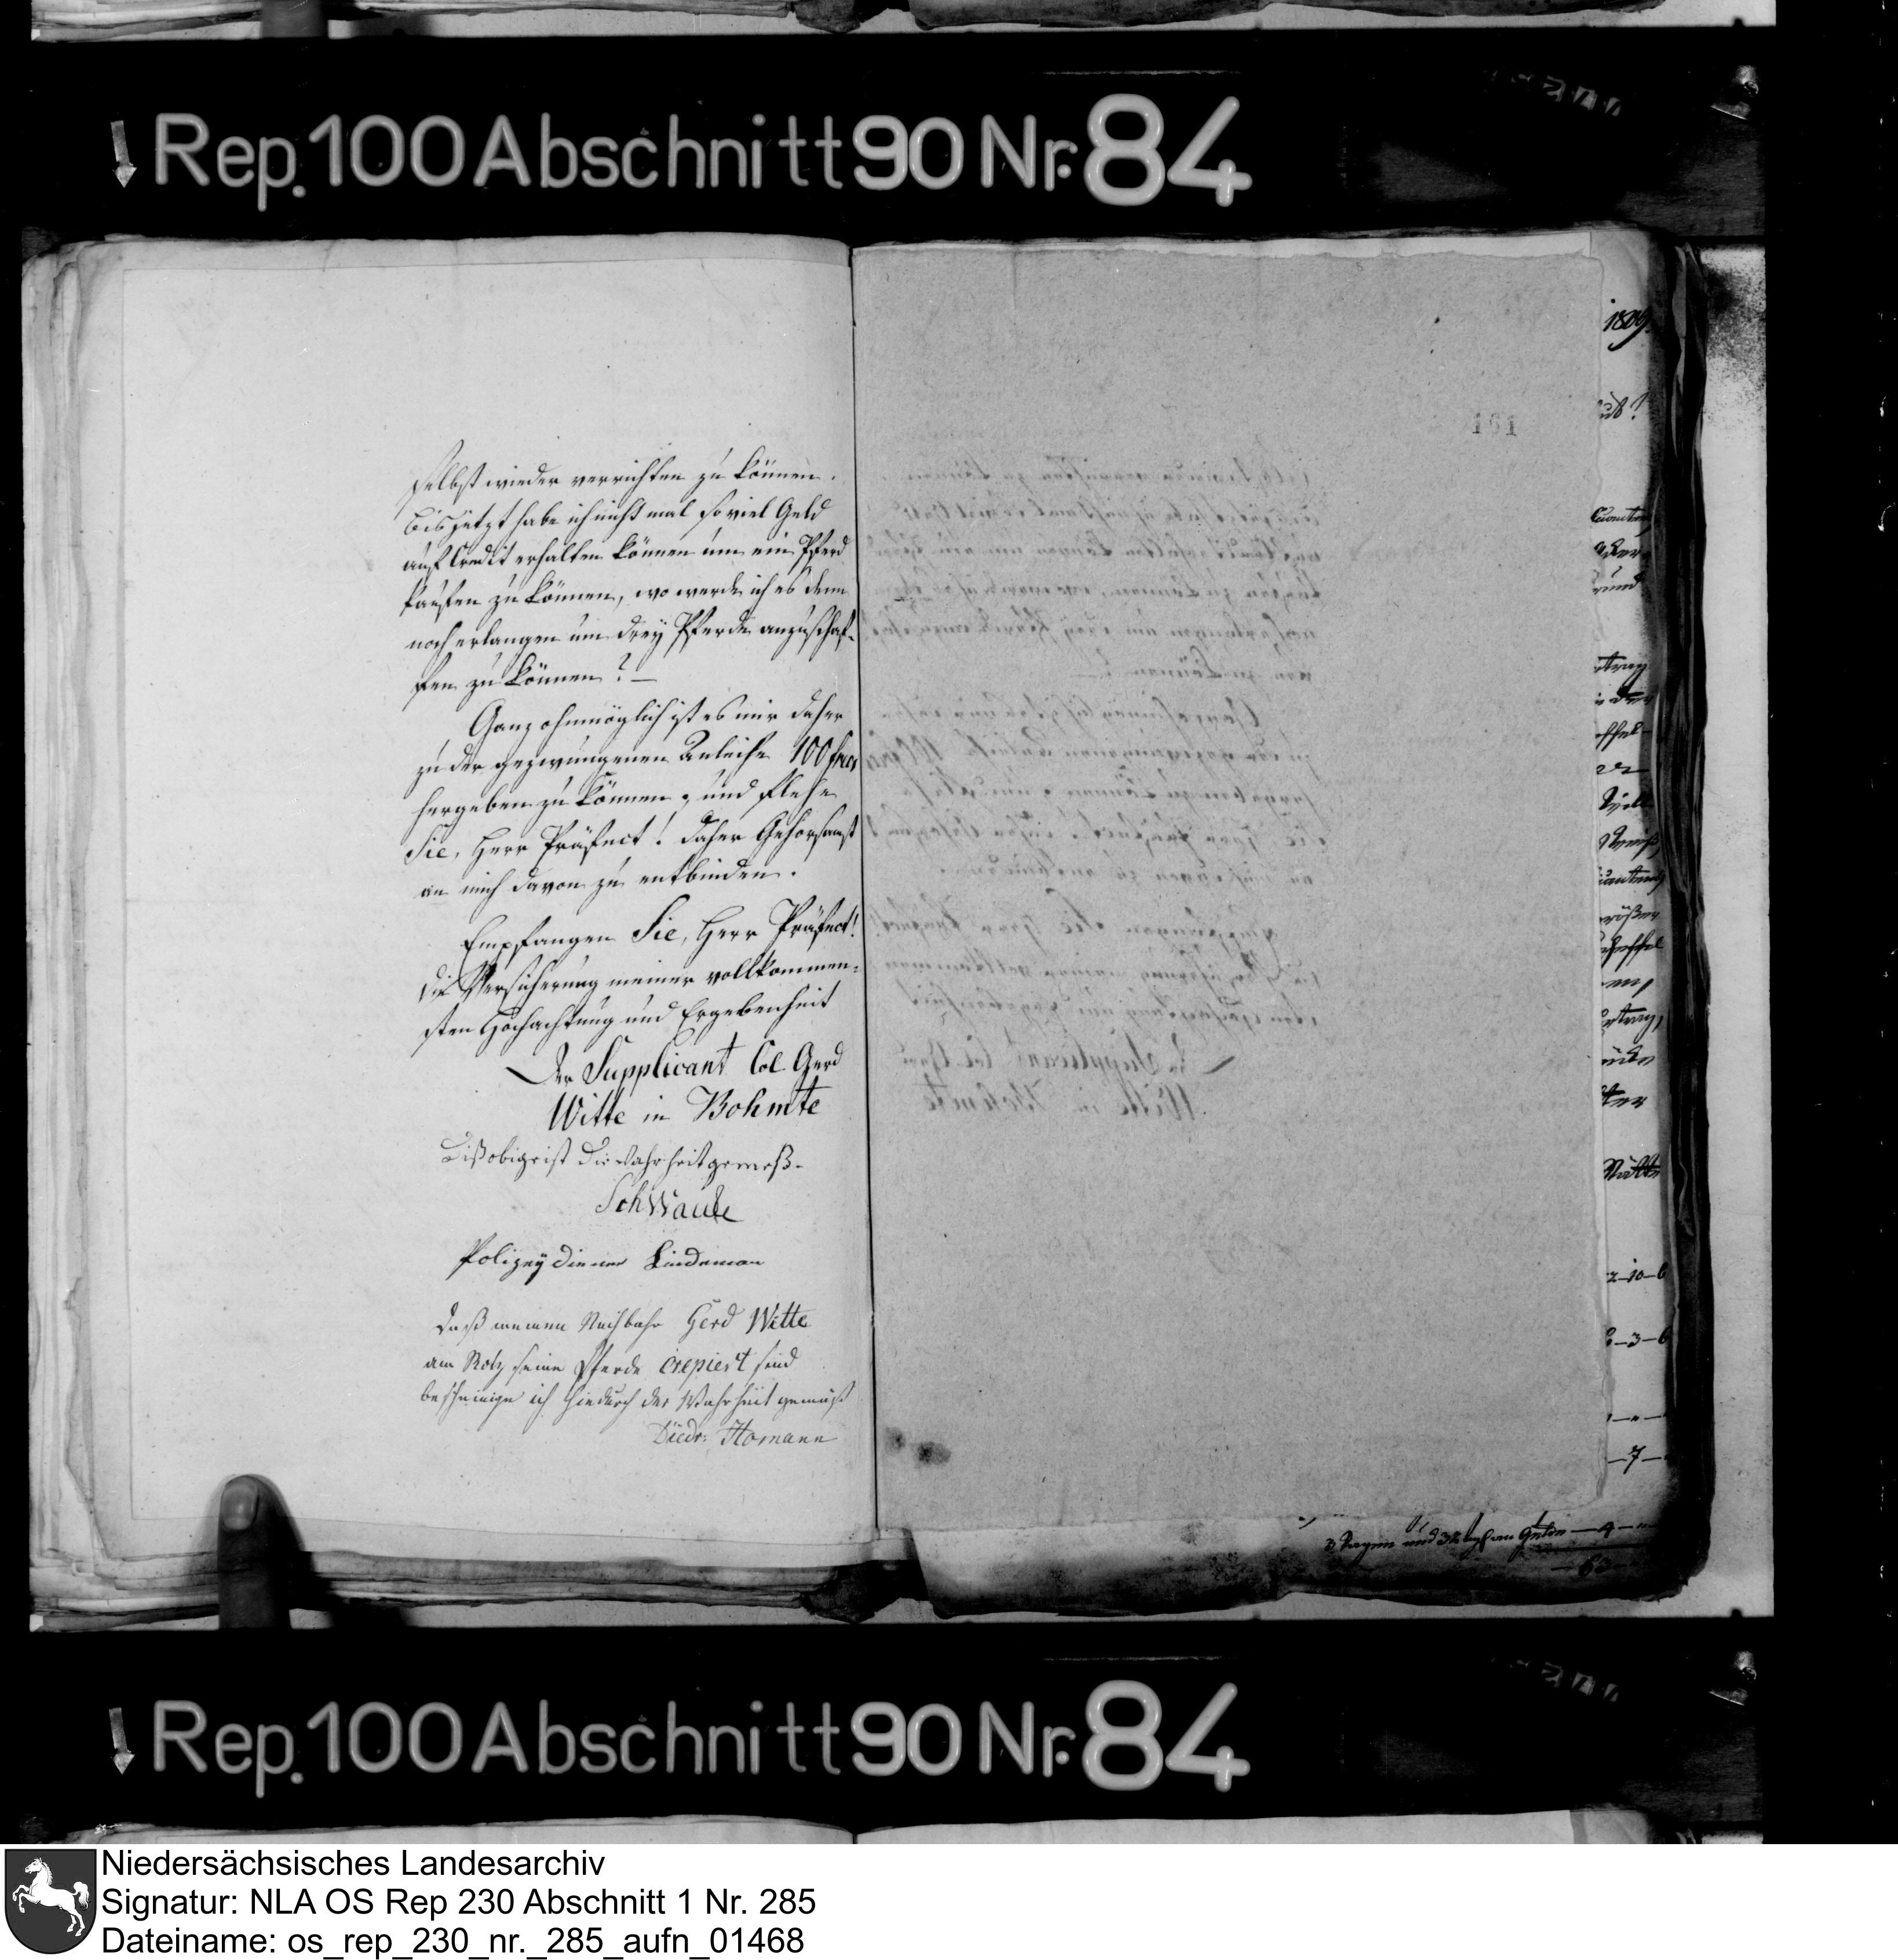 Rep. 100 Abschnitt 90 Nr. 84
selbst wieder verrichten zu können.
Bis jetzt habe ich nicht mal so viel Geld
auf Credit erhalten können um ein Pferd
kaufen zu können, wo werde ich es denn
noch erlangen um drey Pferde anzuschaf-
fen zu können? —
Ganz ohnmöglich ist es mir daher
zu der gezwungenen Anleihe 100 fracs
hergeben zu können, und flehe
Sie, Herr Präfect! daher Gehorsamst
an mich davon zu entbinden.
Empfangen Sie, Herr Präfect!
die Versicherung meiner vollkommen-
sten Hochachtung und Ergebenheit
Der Supplicant Col. Gerd
Witte in Bohmte
Diß obige ist die Wahrheit gemeß.
Schwaule
Polizeydiener Lindeman
Daß meinen Nachbahr Gerd Witte
am Rotz seine Pferde crepiert sind
bescheinige ich hiedurch der Wahrheit gemäß
Diedr: Homann
161
1809.
2-10-6
-3-6
-7-
Rep. 100 Abschnitt 90 Nr. 84
Niedersächsisches Landesarchiv
Signatur: NLA OS Rep 230 Abschnitt 1 Nr. 285
Dateiname: os_rep_230_nr._285_aufn_01468